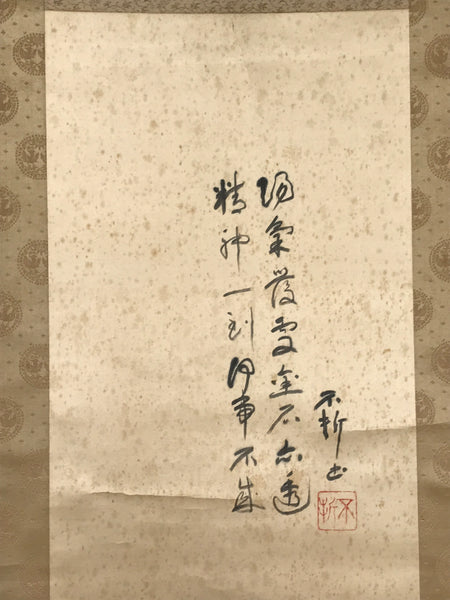 陽氣發處金石亦透
精神一到何事不成
不折書
不折